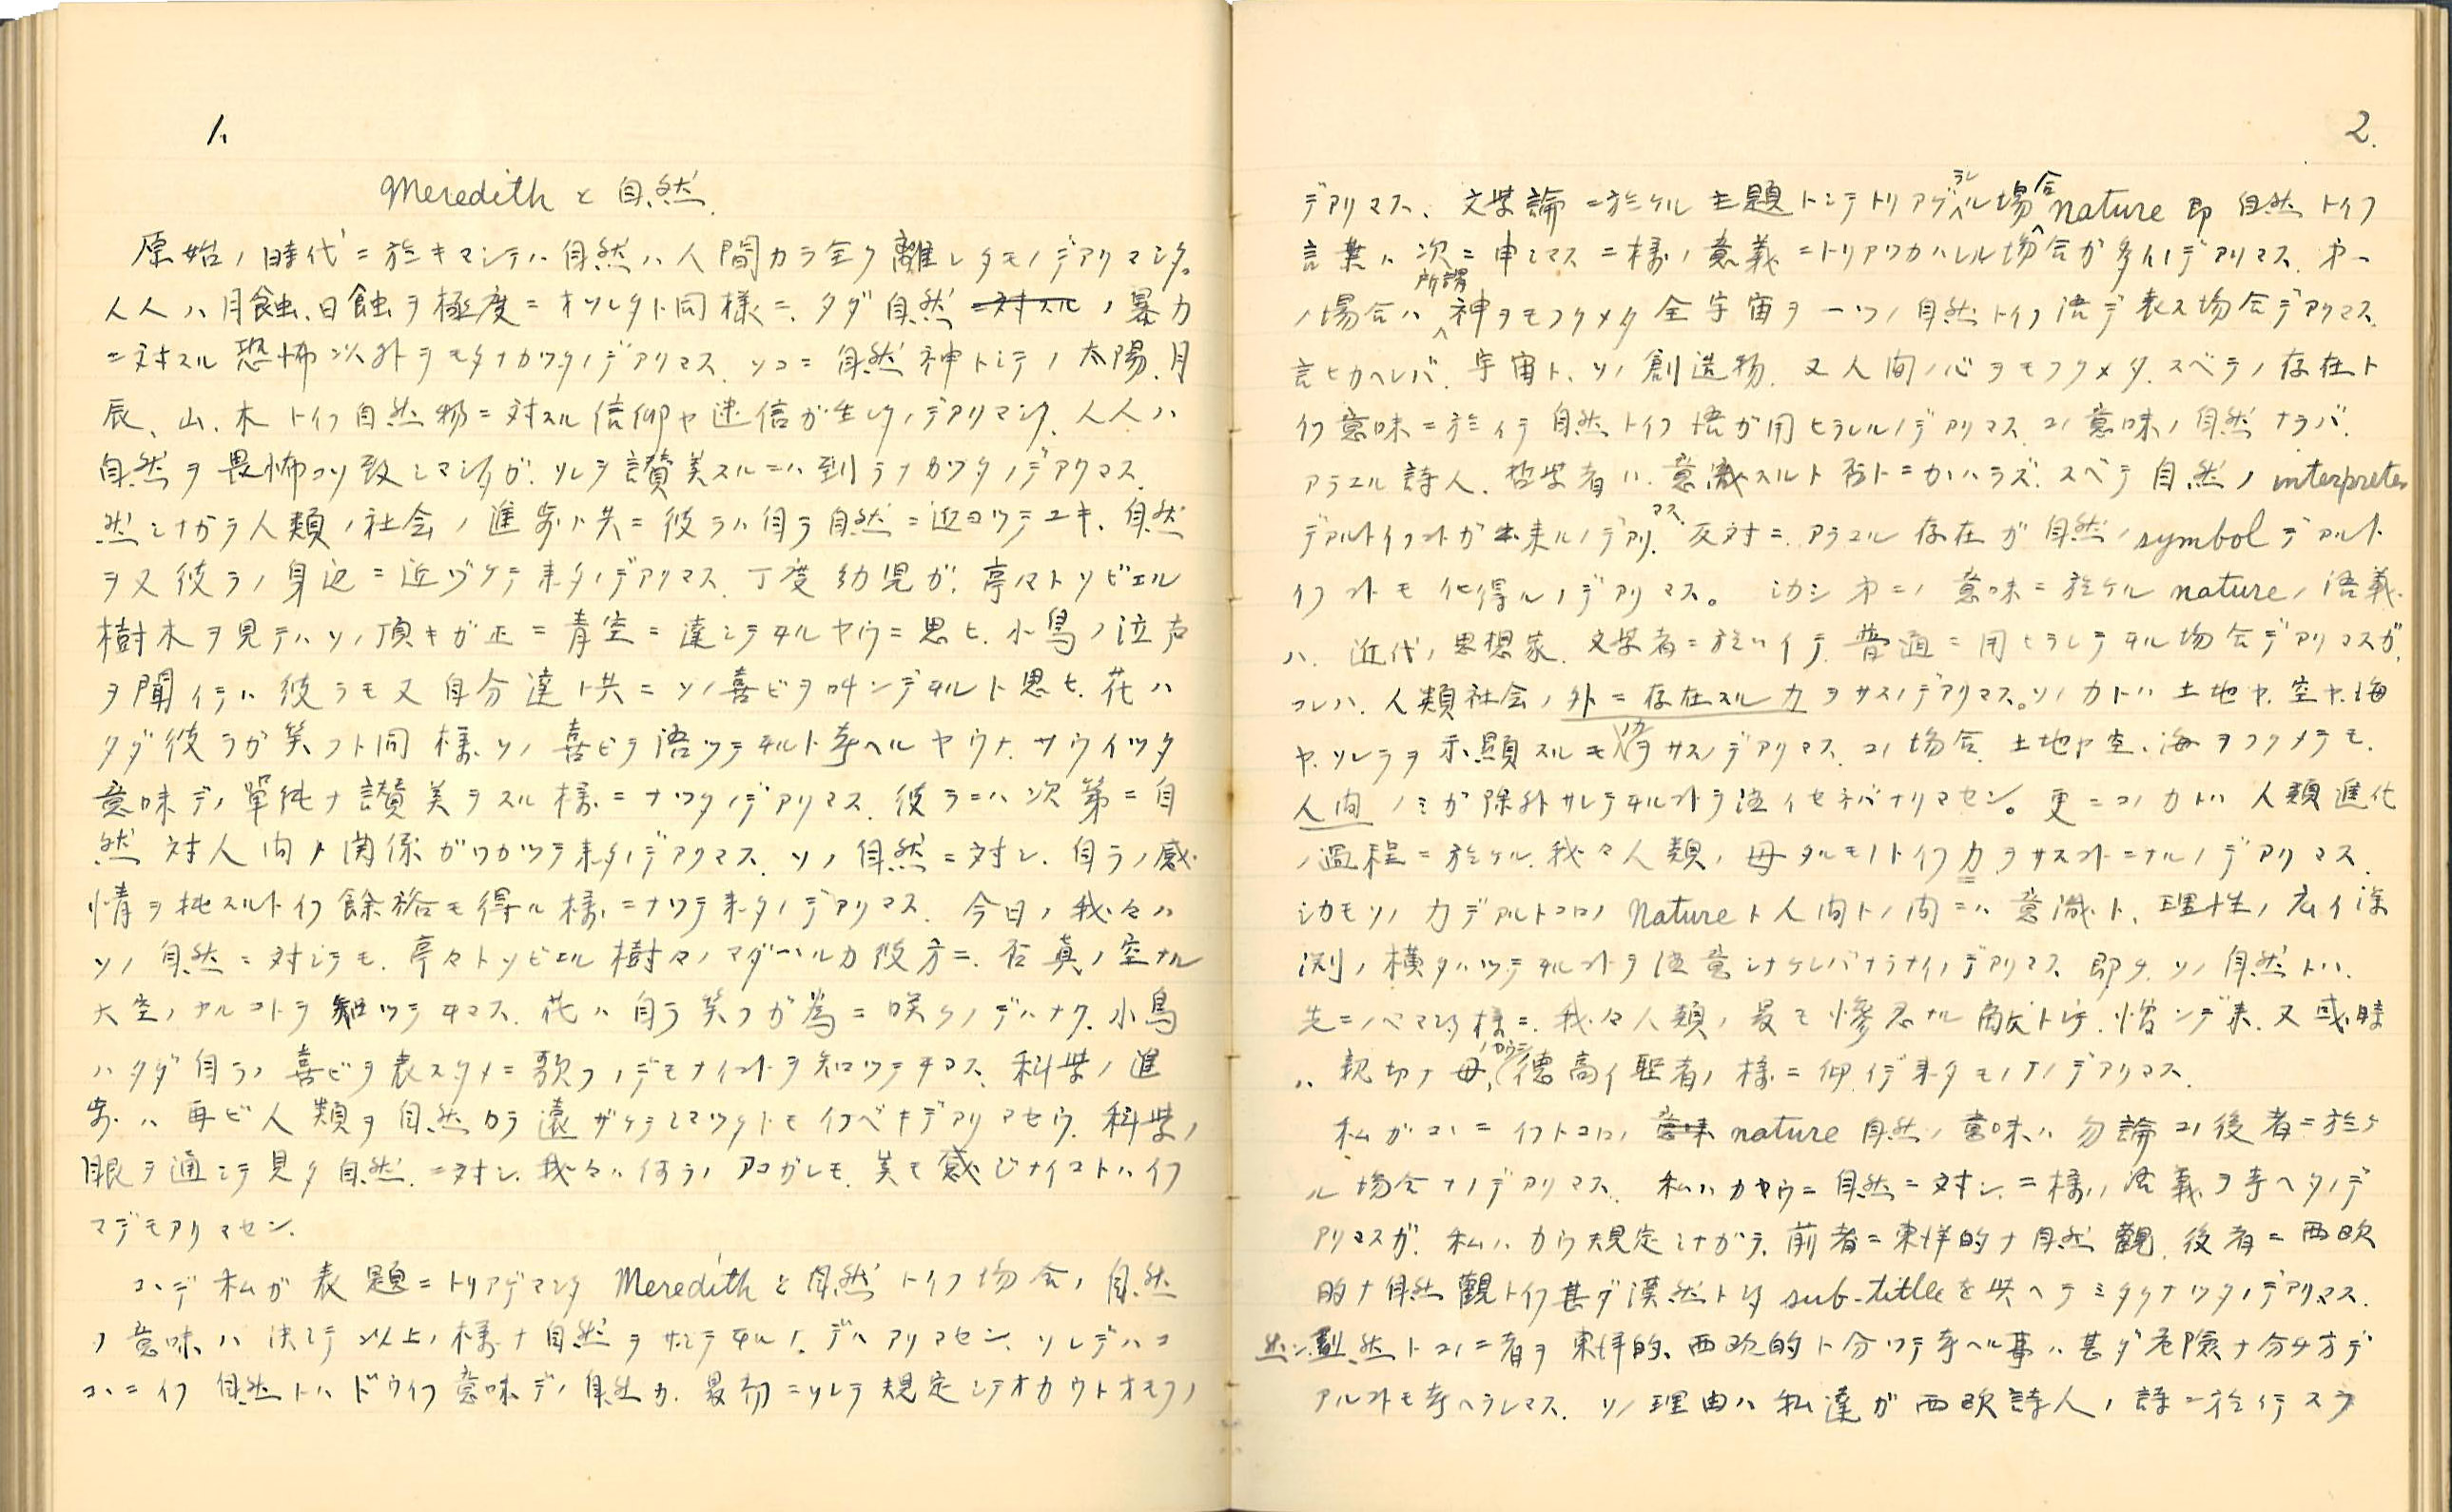 1.
Meredith と自然.
原始ノ時代ニ於キマシテハ自然ハ人間カラ全ク離レタモノデアリマシタ。
人人ハ月蝕、日蝕ヲ極度ニオソレタト同様ニ、タダ自然ニ対スルノ暴力
ニ対スル恐怖以外ヲモタナカツタノデアリマス.ソコニ自然神トシテノ太陽、月
辰、山、木トイフ自然物ニ対スル信仰ヤ迷信ガ生レタノデアリマシタ.人人ハ
自然ヲ畏怖コソ致シマシタガ.ソレヲ讃美スルニハ到ラナカツタノデアリマス.
然シナガラ人類ノ社会ノ進歩ト共ニ彼ラハ自ラ自然ニ近ヨツテユキ、自然
ヲ又彼ラノ身辺ニ近ヅケテ来タノデアリマス.丁度幼児ガ.亭々トソビエル
樹木ヲ見テハソノ頂キガ正ニ青空ニ達シテヰルヤウニ思ヒ.小鳥ノ泣声
ヲ聞イテハ彼ラモ又自分達ト共ニソノ喜ビヲ叫ンデヰルト思ヒ.花ハ
タダ彼ラガ笑フト同様ソノ喜ビヲ語ツテヰルト考ヘルヤウナ.サウイツタ
意味デノ單純ナ讃美ヲスル様ニナツタノデアリマス.彼ラニハ次第ニ自
然対人間ノ関係ガワカツテ来タノデアリマス.ソノ自然ニ対シ.自ラノ感
情ヲ託スルトイフ餘裕モ得ル様ニナツテ来タノデアリマス.今日ノ我々ハ
ソノ自然ニ対シテモ.亭々トソビエル樹々ノマダハルカ彼方ニ.否真ノ空ナル
大空ノアルコトヲ知ツテヰマス.花ハ自ラ笑フガ為ニ咲クノデハナク.小鳥
ハタダ自ラノ喜ビヲ表スタメニ歌フノデモナイコトヲ知ツテヰマス.科学ノ進
歩ハ再ビ人類ヲ自然カラ遠ザケテシマツタトモイフベキデアリマセウ.科学ノ
眼ヲ通シテ見タ自然.ニ対シ.我々ハ何ラノアコガレモ.美モ感ジナイコトハイフ
マデモアリマセン.
コヽデ私ガ表題ニトリアゲマシタ Meredith と自然トイフ場合ノ自然
ノ意味ハ決シテ以上ノ様ナ自然ヲサシテヰルノデハアリマセン.ソレデハコ
コヽニイフ自然トハドウイフ意味デノ自然カ.最初ニソレヲ規定シテオカウトオモフノ
2.
デアリマス.文学論ニ於ケル主題トシテトリアゲラレル場合 nature 即 自然トイフ
言葉ハ次ニ申シマス二様ノ意義ニトリアツカハレル場合ガ多イノデアリマス.第一
ノ場合ハ所謂神ヲモフクメタ全宇宙ヲ一ツノ自然トイフ語デ表ス場合デアリマス.
言ヒカヘレバ.宇宙ト、ソノ創造物.又人間ノ心ヲモフクメタ.スベテノ存在ト
イフ意味ニ於イテ自然トイフ語ガ用ヒラレルノデアリマス.コノ意味ノ自然ナラバ.
アラユル詩人.哲学者ハ.意識スルト否トニカヽハラズ.スベテ自然ノ interpreter
デアルトイフコトガ出来ルノデアリマス.反対ニ.アラユル存在ガ自然ノ symbol デアルト
イフコトモ云ヒ得ルノデアリマス。シカシ第二ノ意味ニ於ケル nature ノ語義
ハ.近代ノ思想家.文学者ニ於イテ.普通ニ用ヒラレテヰル場合デアリマスガ、
コレハ.人類社会ノ外ニ存在スル力ヲサスノデアリマス。ソノ力トハ土地ヤ.空ヤ.海
ヤ.ソレラヲ示顕スルモノヲサスノデアリマス.コノ場合.土地ヤ空、海ヲフクメテモ.
人間ノミガ除外サレテヰルコトヲ注イセネバナリマセン。更ニコノ力トハ人類進化
ノ過程ニ於ケル.我々人類ノ母タルモノトイフ力ヲサスコトニナルノデアリマス.
シカモソノ力デアルトコロノ Nature ト人間トノ間ニハ意識ト、理性ノ広イ深
淵ノ横タハツテヰルコトヲ注意シナケレバナラナイノデアリマス.即チ.ソノ自然トハ.
先ニノベマシタ様ニ.我々人類ノ最モ惨忍ナル敵トシテ.憎ンデ来.又或時
ハ親切ナ母ノヤウニ、徳高イ聖者ノ様ニ仰イデ来タモノナノデアリマス.
私ガコヽニイフトコロノ意味 nature 自然ノ意味ハ勿論コノ後者ニ於ケ
ル場合ナノデアリマス.私ハカヤウニ自然ニ対シ.二様ノ語義ヲ考ヘタノデ
アリマスガ.私ハカウ規定シナガラ.前者ニ東洋的ナ自然觀.後者ニ西欧
的ナ自然觀トイフ甚ダ漠然トシタ sub-title を与ヘテミタクナツタノデアリマス.
然シ.劃然トコノ二者ヲ東洋的、西欧的ト分ツテ考ヘル事ハ甚ダ危険ナ分チ方デ
アルコトモ考ヘラレマス.ソノ理由ハ私達ガ西欧詩人ノ詩ニ於イテスラ